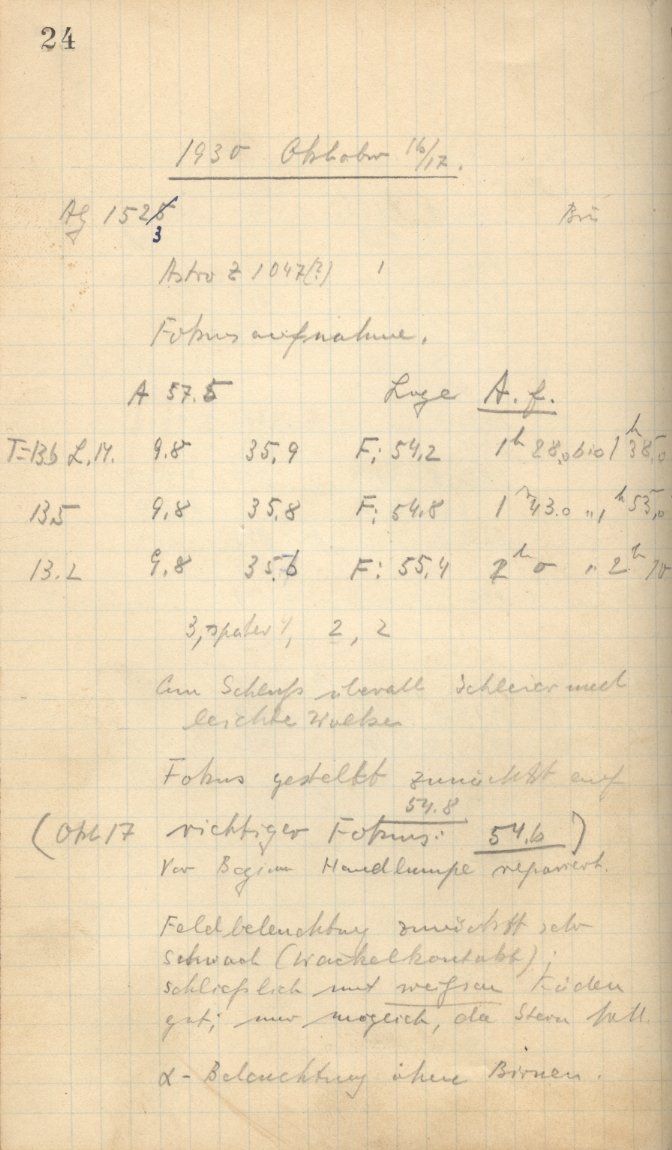 24
1930 Oktober 16/17.
AG 1525 Brü
3
Astro Z 1047(?) 1
Fokusaufnahme.
A 57.5 Lage A. f.
T=13.6 L.M. 9.8 35,9 F: 54,2 1h 28,0 bis 1h 38,0
13.5 9,8 35.8 F: 54,8 1h 43.0 " 1h 53,0
13.2 9.8 35.6 F: 55,4 2h 0 " 2h 10
3, später 1, 2, 2
Am Schluß überall Schleier und
leichte Wolken
Fokus gestellt zunächst auf
54.8
(Okt 17 richtiger Fokus: 54,6)
Vor Beginn Handlampe repariert.
Feldbeleuchtung zunächst sehr
schwach (Wackelkontakt);
schließlich mit weißen Fäden
gut; nur möglich, da Stern hell.
α-Beleuchtung ohne Birnen.